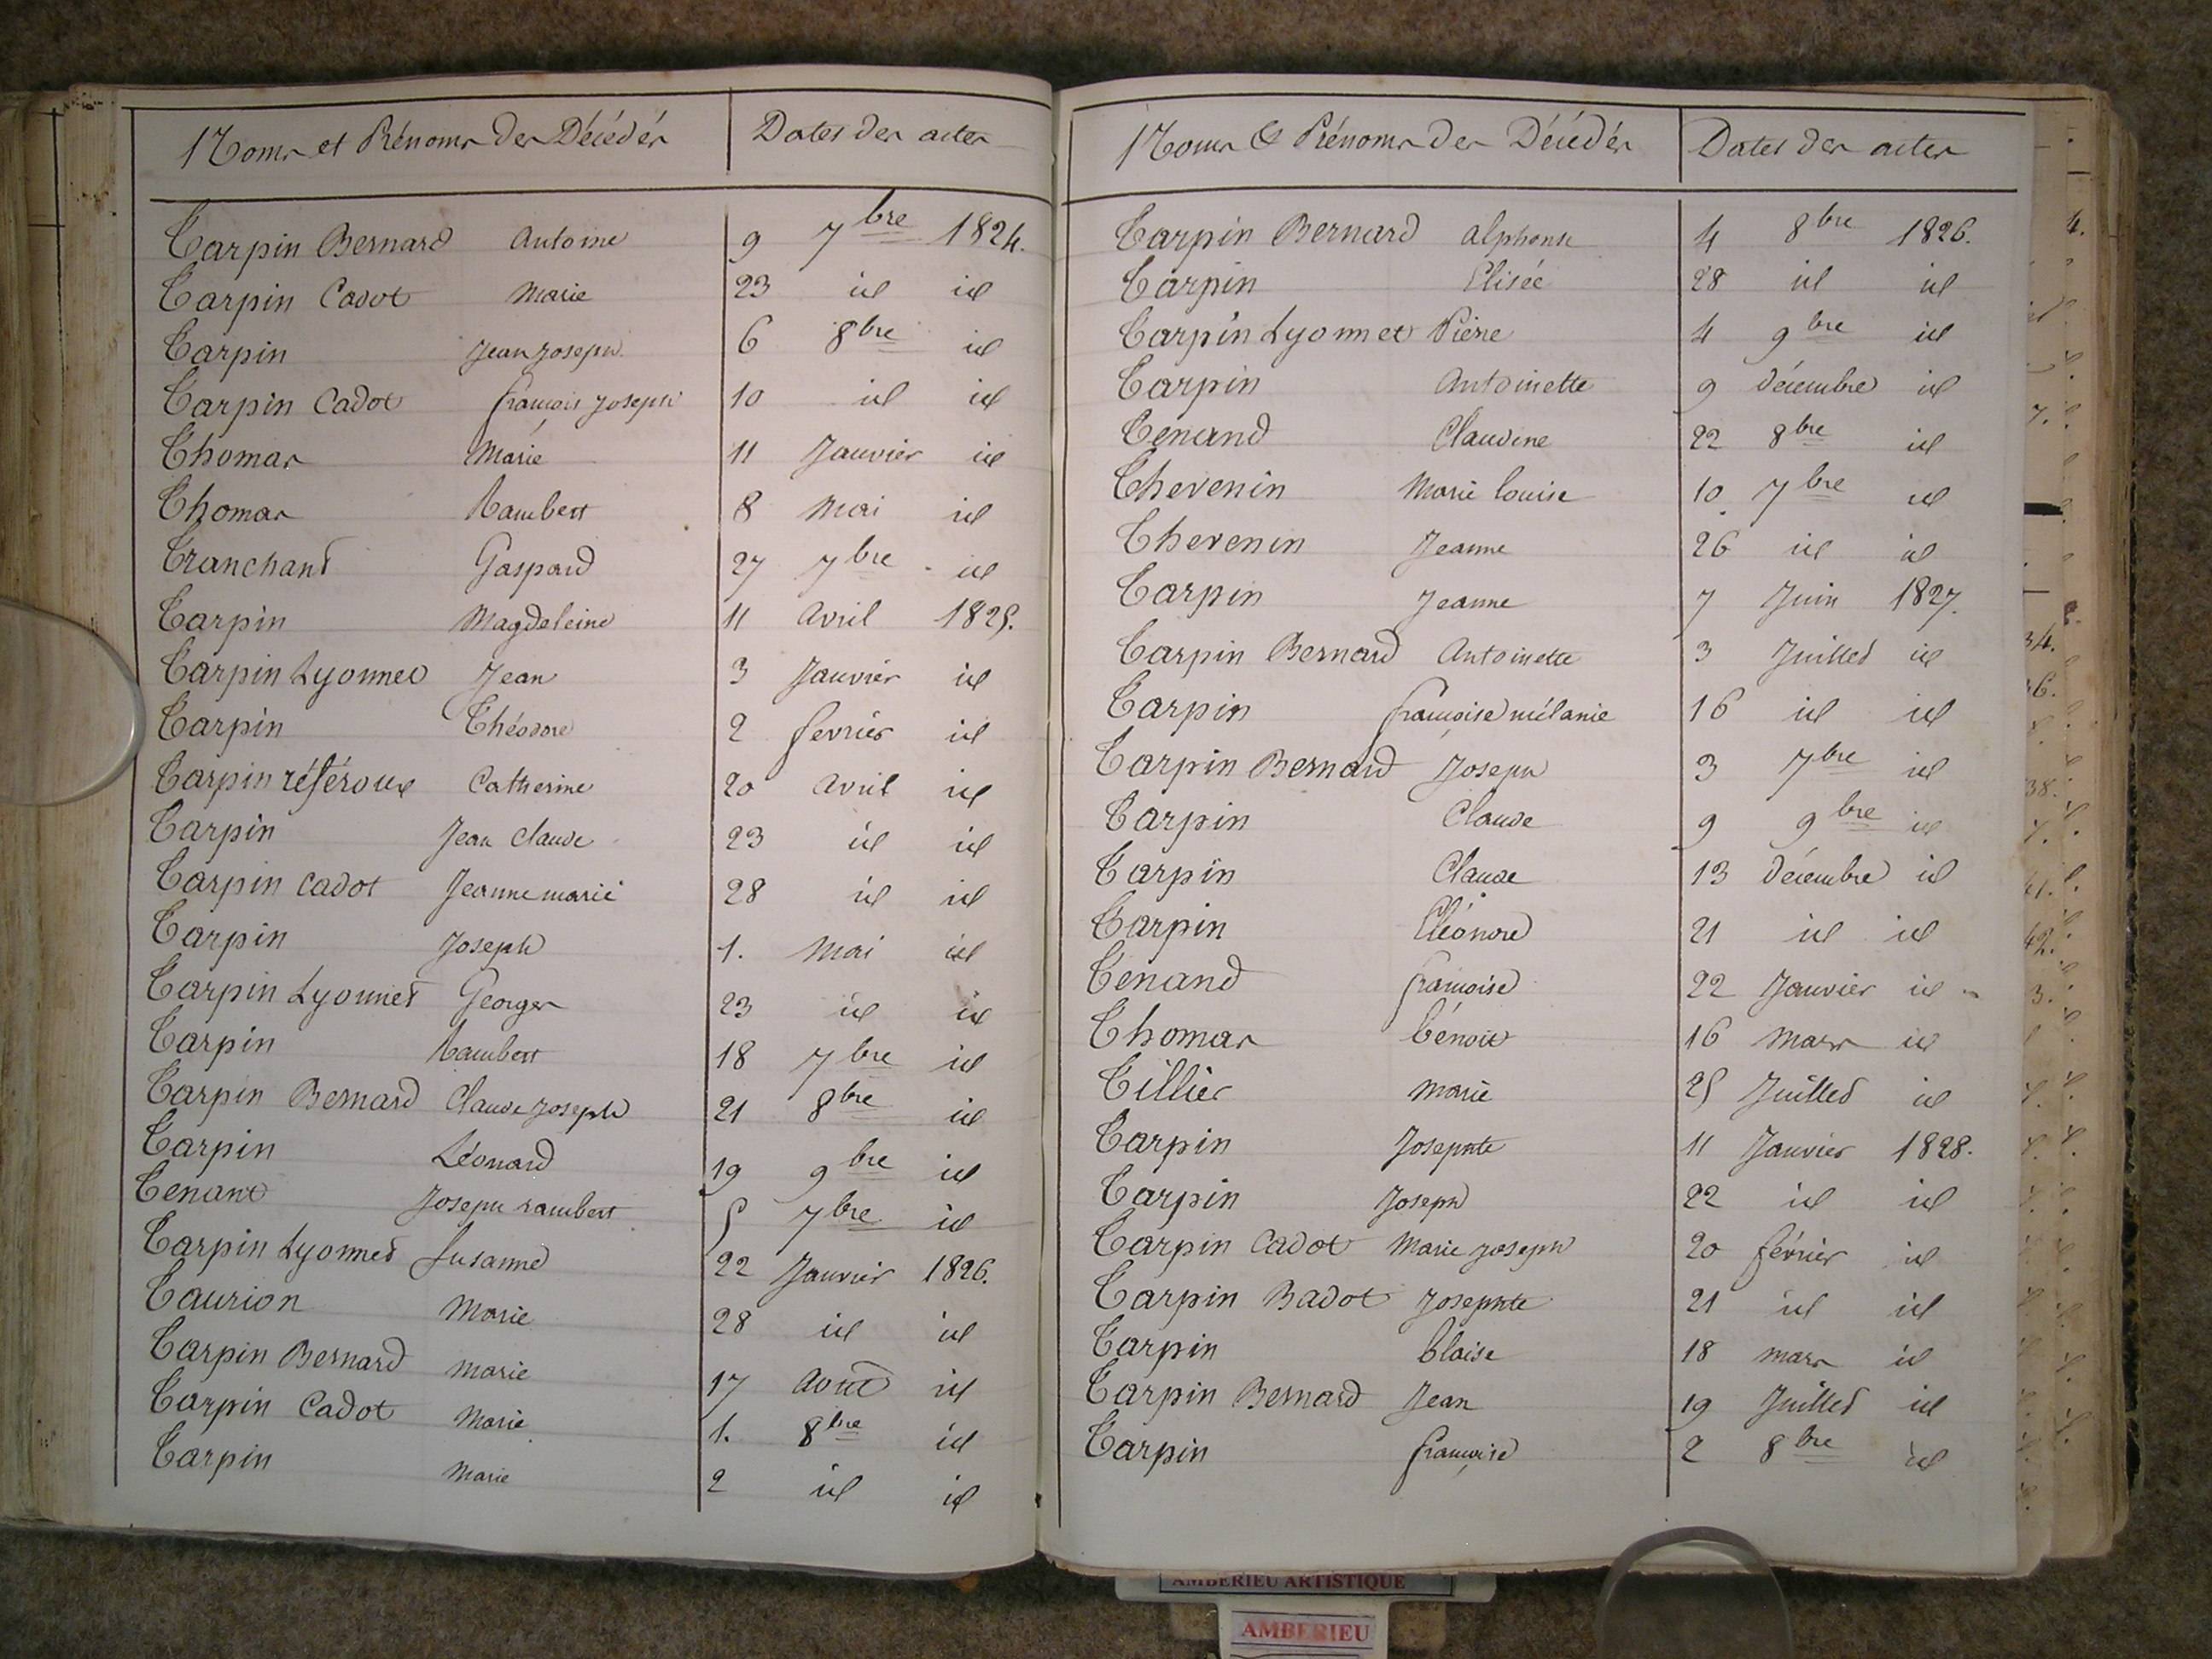 Noms et Prénoms des Décédés Dates des actes
Tarpin Bernard Antoine 9 7bre 1824.
Tarpin Cadot Marie 23 id id
Tarpin Jean Joseph 6 8bre id
Tarpin Cadot françois Joseph 10 id id
Thomas Marie 11 Janvier id
Thomas Rambert 8 Mai id
Tranchant Gaspard 27 7bre id
Tarpin Magdeleine 11 Avril 1825.
Tarpin Lyonnet Jean 3 Janvier id
Tarpin Théodore 2 fevrier id
Tarpin Catherine 20 Avril id
Tarpin Jean Claude 23 id id
Tarpin Cadot Jeanne marie 28 id id
Tarpin Joseph 1. Mai id
Tarpin Lyonnet Georges 23 id id
Tarpin Rambert 18 7bre id
Tarpin Bernard Claude Joseph 21 8bre id
Tarpin Léonard 19 9bre id
Tenant Joseph rambert 5 7bre id
Tarpin Lyonnet Susanne 22 Janvier 1826.
Taurion Marie 28 id id
Tarpin Bernard Marie 17 Aout id
Tarpin Cadot Marie 1. 8bre id
Tarpin Marie 2 id id
Noms & Prénoms des Décédés Dates des actes
Tarpin Bernard alphonse 4 8bre 1826.
Tarpin Elisée 28 id id
Tarpin Lyonnet Pierre 4 9bre id
Tarpin Antoinette 9 décembre id
Tenand Claudine 22 8bre id
Thevenin Marie louise 10 7bre id
Thevenin Jeanne 26 id id
Tarpin Jeanne 7 Juin 1827.
Tarpin Bernard Antoinette 3 Juillet id
Tarpin françoise mélanie 16 id id
Tarpin Bernard Joseph 3 7bre id
Tarpin Claude 9 9bre id
Tarpin Claude 13 décembre id
Tarpin Eléonore 21 id id
Tenand françoise 22 Janvier id
Thomas bénoit 16 Mars id
Tillier Marie 25 Juillet id
Tarpin Josephte 11 Janvier 1828.
Tarpin Joseph 22 id id
Tarpin Cadot Marie Joseph 20 février id
Tarpin Badot Josephte 21 id id
Tarpin blaise 18 mars id
Tarpin Bernard Jean 19 Juillet id
Tarpin françoise 2 8bre id
AMBERIEU ARTISTIQUE
AMBERIEU